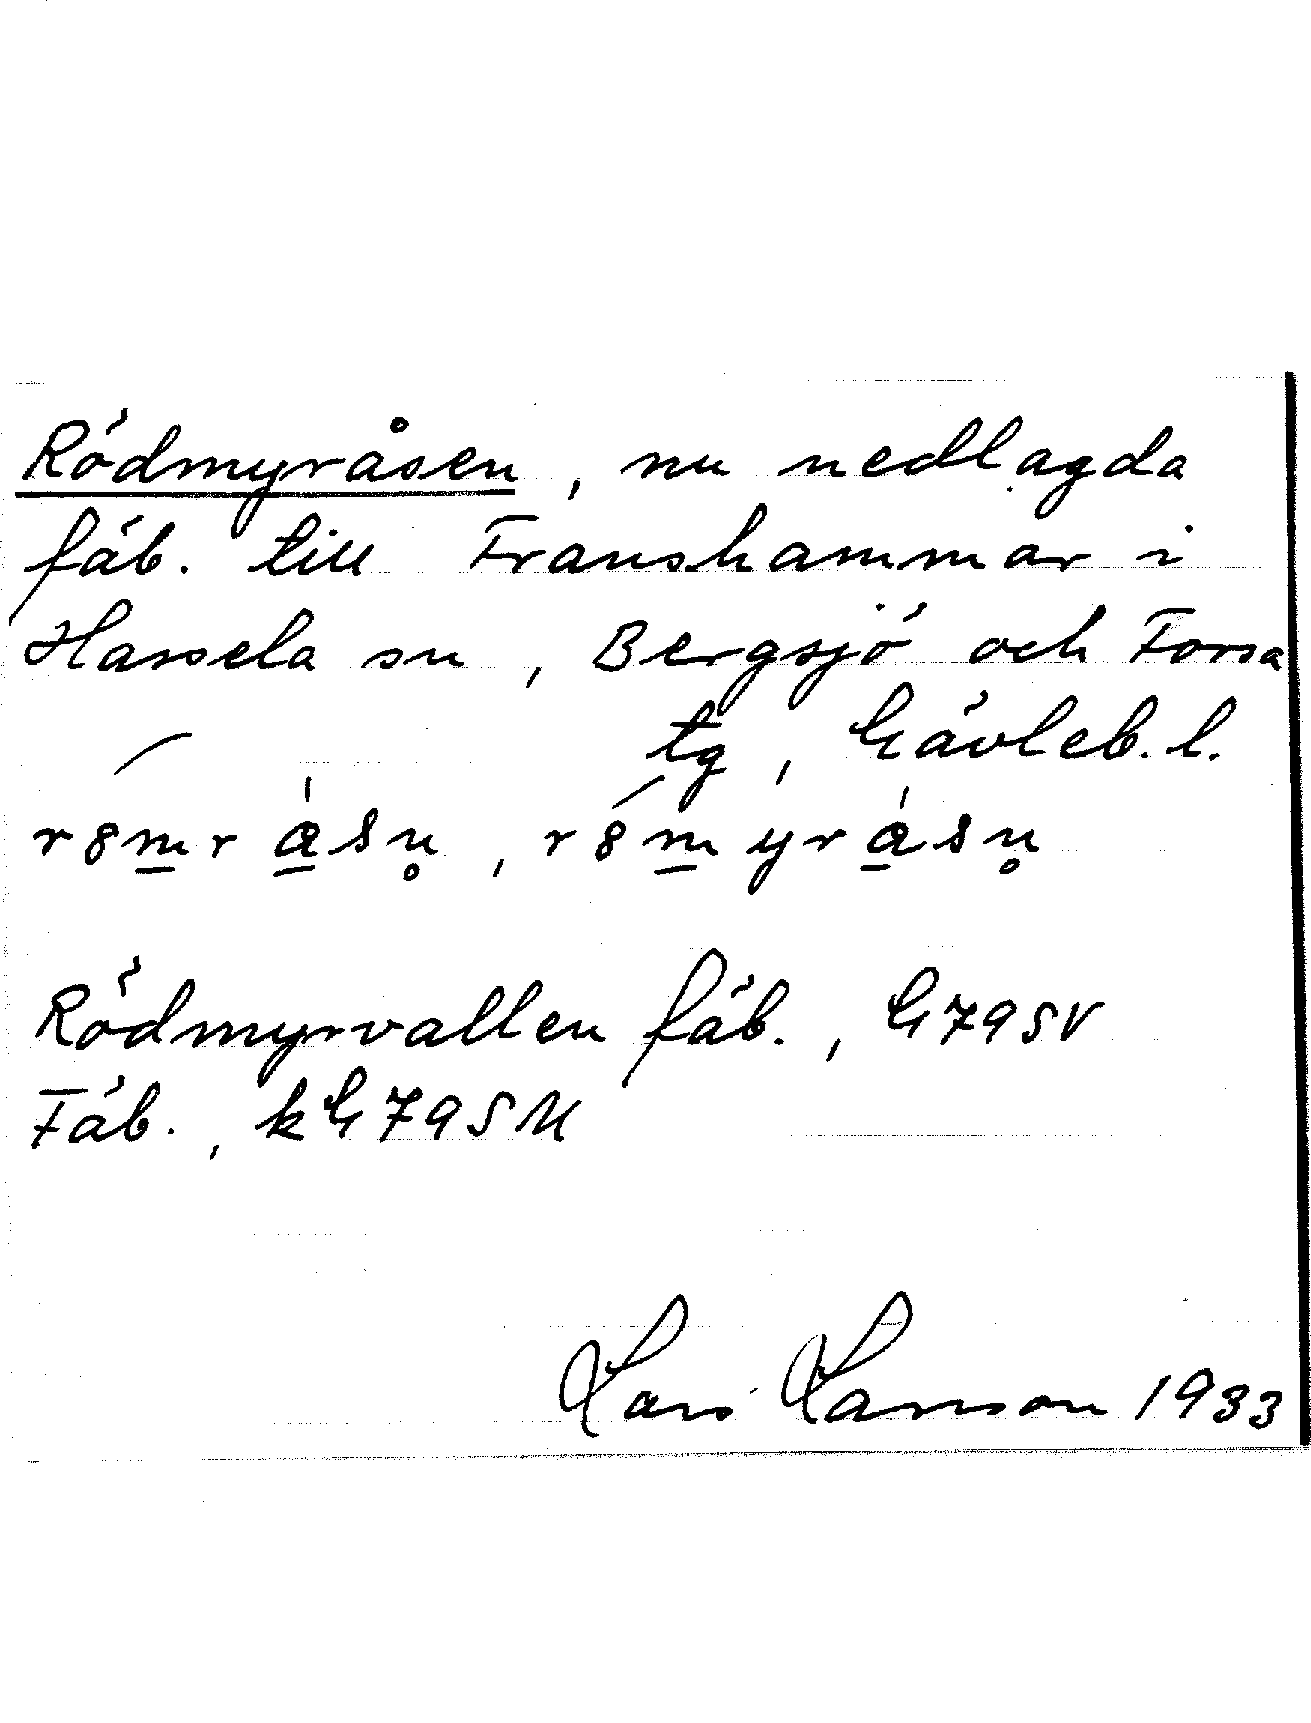 Rödmyråsen, nu nedlagda
fäb. till Franshammar i
Hassela sn, Bergsjö och Forsa
tg, Gävleb. l.
r8m̲r a̲sn̥, r8m̲yra̲sn̥
Rödmyrvallen fäb., G79SV
Fäb., kG79SU
Lars Larsson 1933